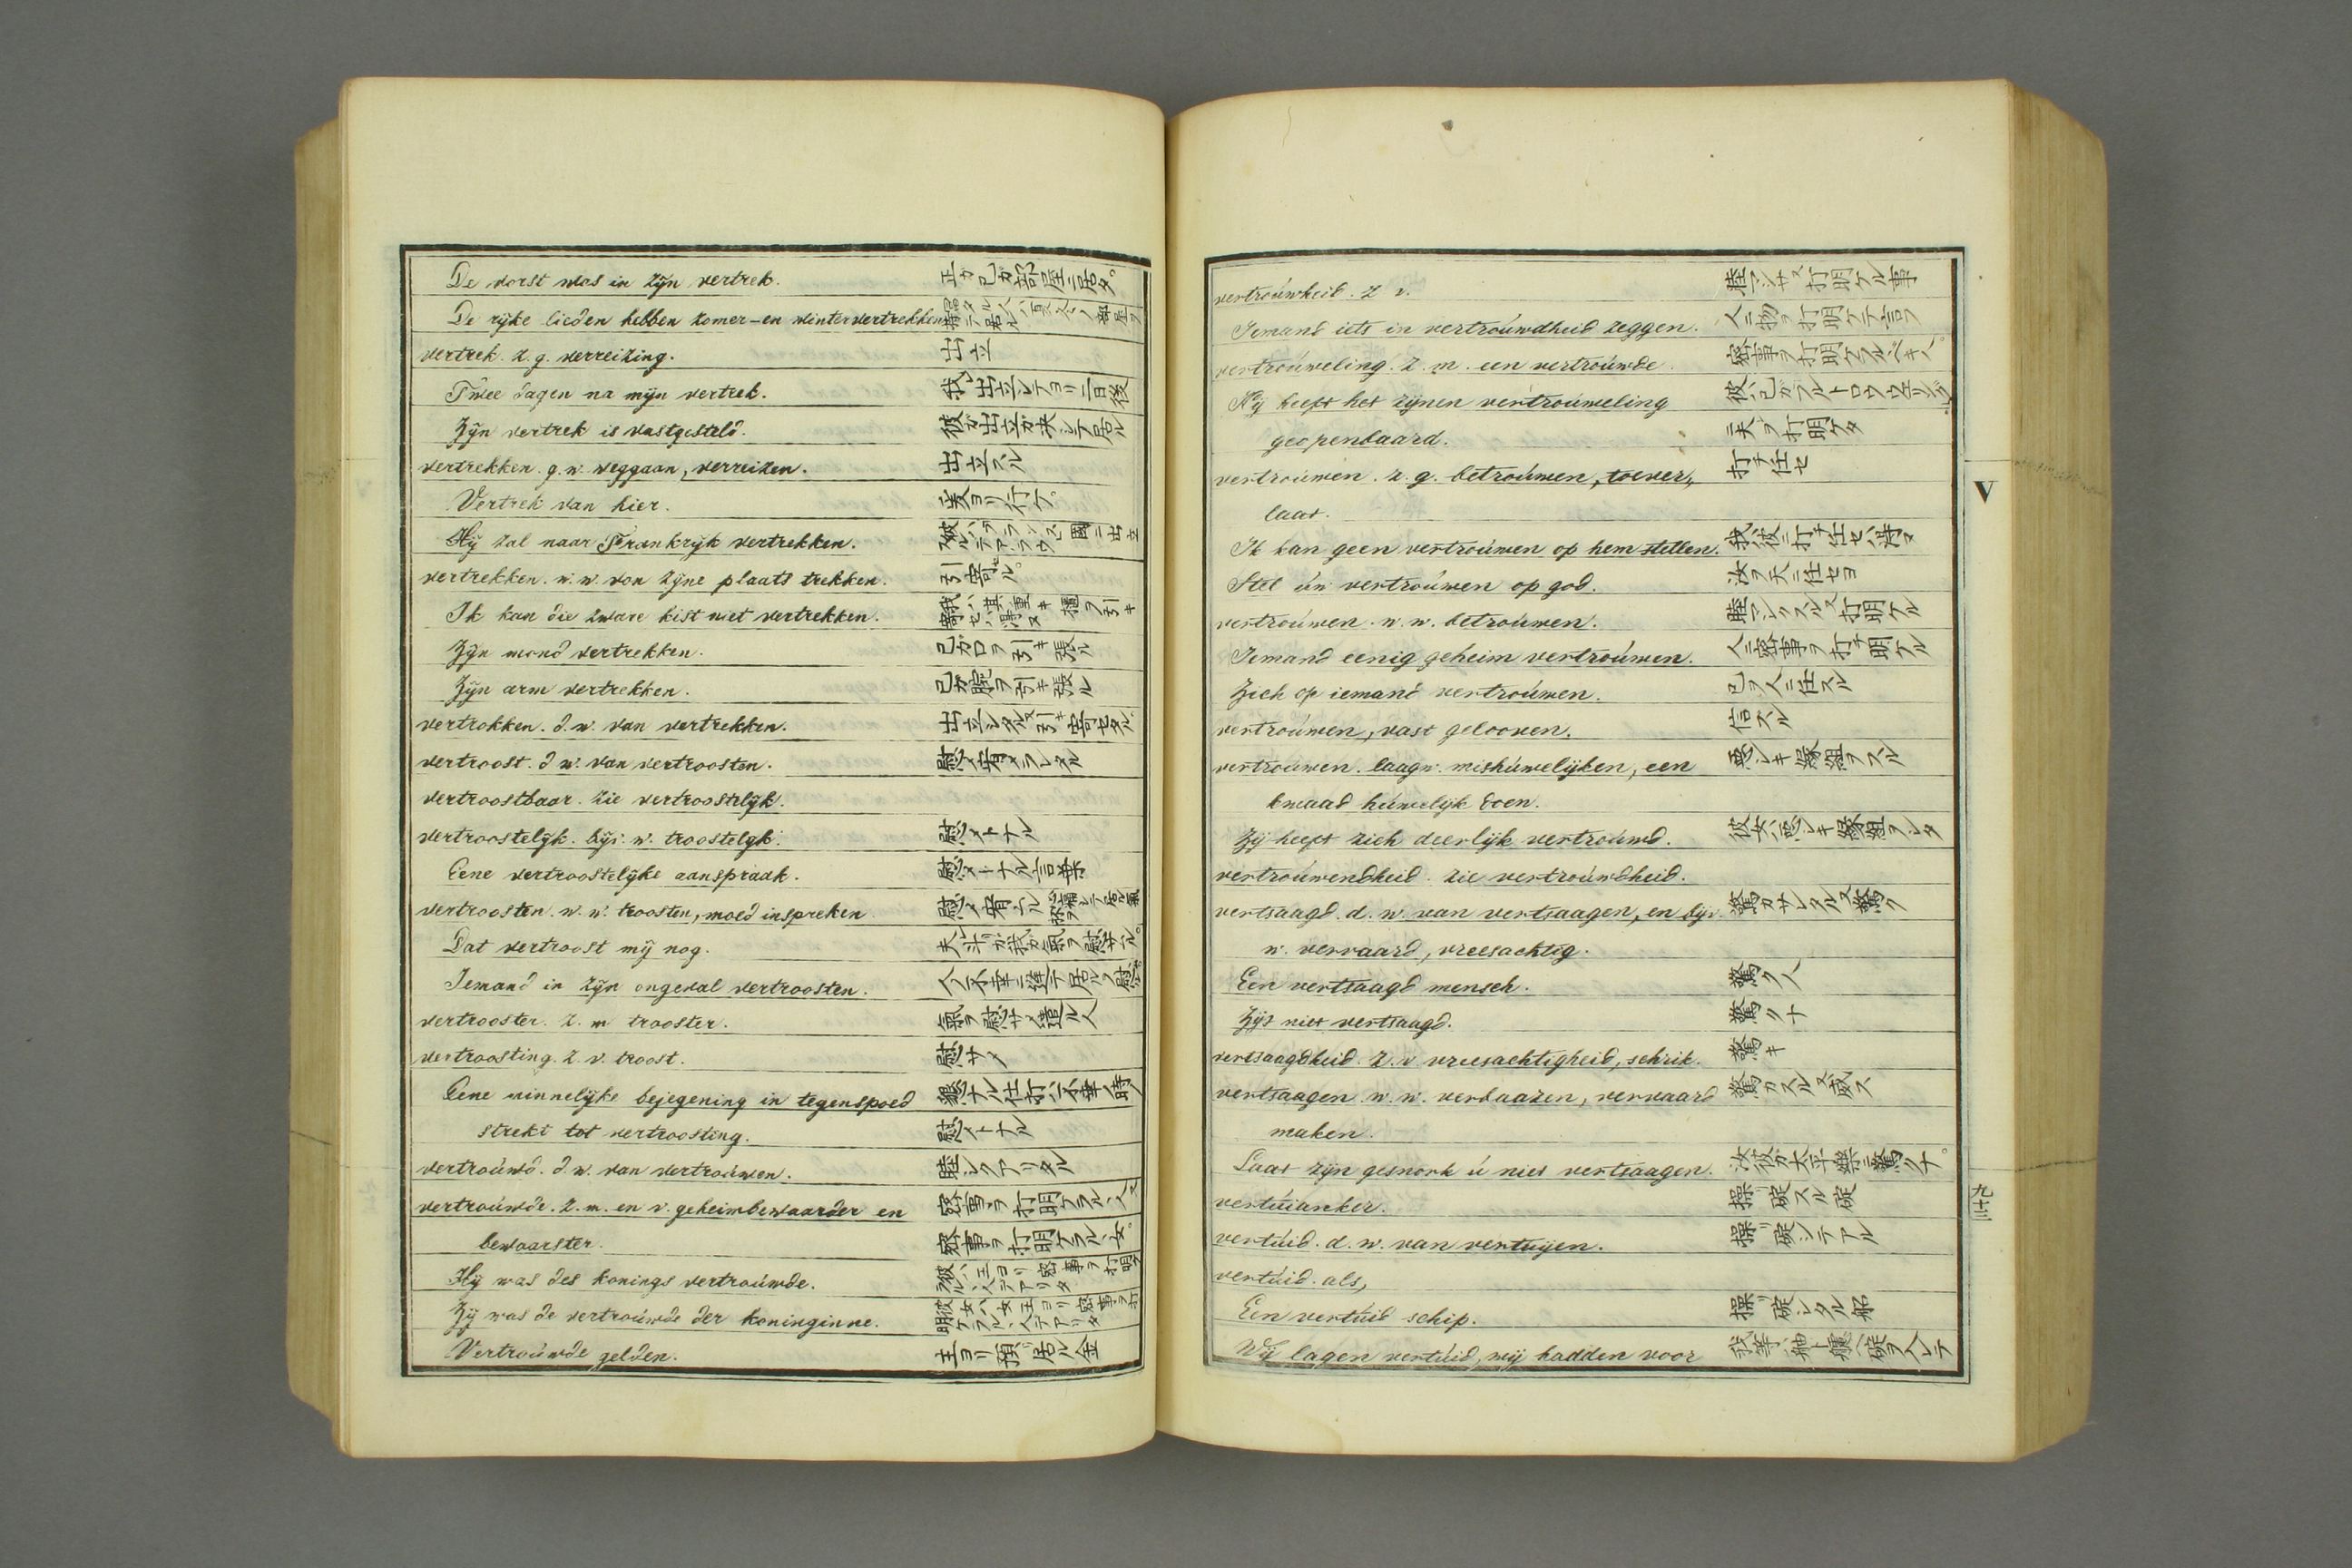 De vorst was in zÿn vertrek. 王ガ己ガ部屋ニ居タ。
De rÿke lieden hebben zomer-en wintervertrekken
vertrek. z. g. verreizing. 出立
Twee dagen na mÿn vertrek. 我ガ出立シテヨリ二日後
Zÿn vertrek is vastgesteld. 彼ガ出立ガ決シテ居ル
vertrekken. g. w. weggaan, verreizen. 出立スル
Vertrek van hier. 爰ヨリ行ケ。
Hÿ zal naar Frankrÿk vertrekken. 彼ハフランス国ニ出立スルデアラウ
vertrekken. w. w. von zÿne plaats trekken. 引寄ル。
Ik kan die zware kist niet vertrekken. 我ハ其重キ櫃ヲ引キ寄セ得ヌ
Zÿn mond vertrekken. 己ガ口ヲ引キ張ル
Zÿn arm vertrekken. 己ガ腕ヲ引キ張ル
vertrokken. d. w. van vertrekken. 出立シタル又引キ寄セタル。
vertroost. d w. van vertroosten. 慰メ宥メラレタル
vertroostbaar. zie vertroostelÿk.
vertroostelÿk. bÿv. w. troostelÿk. 慰メトナル
Eene vertroostelÿke aanspraak. 慰メトナル言葉
vertroosten. w. w. troosten, moed inspreken 慰メ宥ムル
Dat vertroost mÿ nog.
Iemand in zÿn ongeval vertroosten. 人ノ不幸ニ逢テ居ルヲ慰ム
vertrooster. z. m trooster. 氣ヲ慰サメ遣ル人
vertroosting. z. v. troost. 慰サメ
Eene minnelÿke bejegening in tegenspoed 懇ナル仕打ハ不幸ノ時ノ
strekt tot vertroosting. 慰メトナル
vertroúwd. d. w. van vertroúwen. 睦シクアリタル
vertroúwde. z. m. en v. geheimbewaarder en 密事ヲ打明ケラルヽ人
bewaarster. 密事ヲ打明ケラルヽ女。
Hÿ was des konings vertroúwde. 彼ハ王ヨリ密事ヲ打明ケラルヽ人デアリタ
Zÿ was de vertroúwde der koninginne. 彼女ハ女王ヨリ密事ヲ打明ケラルヽ人デアリタ
Vertroúwde gelden. 主ヨリ預リ居ル金
vertroúwheid. z v. 睦マシサ又打明ケル事
Iemand iets in vertroúwdheid zeggen. 人ニ物ヲ打明ケテ言フ
vertroúweling. z. m. een vertroúwde. 密事ヲ打明ケラルベキ人。
Hÿ heeft het zÿnen vertroúweling 彼ハ己ガフルトロウウェリング
geopenbaard. ニ夫ヲ打明ケタ
vertroúwen. z. g. betroúwen, toever,, 打チ任セ
laat.
Ik kan geen vertroúwen op hem stellen. 我ハ彼ニ打チ任セハ得ヌ
Stel úw vertroúwen op god. 汝ヲ天ニ任セヨ
vertroúwen. w. w. betroúwen. 睦マシクスル又打明ケル
Iemand eenig geheim vertroúwen. 人ニ密事ヲ打チ明ケル
Zich op iemand vertroúwen. 己ヲ人ニ任スル
vertroúwen, vast gelooven. 信スル
vertroúwen. laagw. mishúwelÿken, een 悪シキ縁組ヲスル
kwaad húwelÿk doen.
Zÿ heeft zich deerlÿk vertroúwd. 彼女ハ悪シキ縁組ヲシタ
vertroúwendheid. zie vertroúwdheid.
vertsaagd. d. w. van vertsaagen, en bÿv. 驚カサレタル又驚ク
w. vervaard, vreesachtig.
Een vertsaagd mensch. 驚ク人
Zÿt niet vertsaagd. 驚クナ
vertsaagdheid. z. v. vreesachtigheid, schrik. 驚キ
vertsaagen. w. w. verbaazen, vervaard 驚カスル又威ス
maken.
Laat zÿn gesnork ú niet vertsaagen. 汝彼ガ太平樂ニ驚クナ。
vertúianker.
vertúid. d. w. van vertuÿen.
vertúid. als,
Een vertúid schip.
Wÿ lagen vertúid, wÿ hadden voor
V
九十三